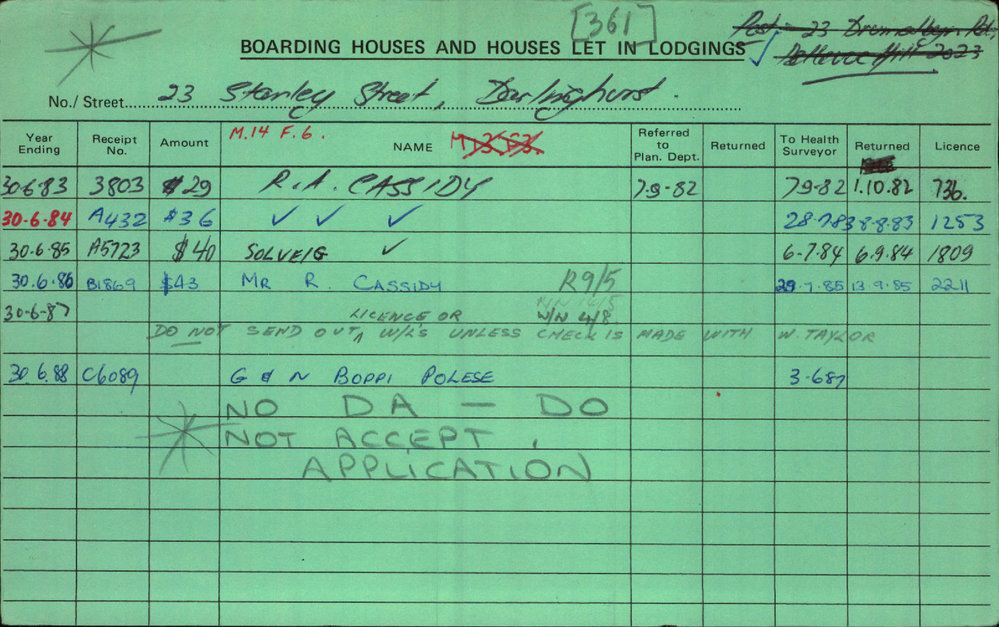 [361]
Post:- 23 Drumalbyn Rd,
BOARDING HOUSES AND HOUSES LET IN LODGINGS
Bellevue Hill 2023
No./Street 23 Stanley Street, Darlinghurst
Year Ending Receipt No. Amount M.14 F.6. NAME Referred to Plan. Dept. Returned To Health Surveyor Returned Licence
30.6.83 3803 $29 R.A. CASSIDY 7-9-82 7.9-82 1.10.82 736.
30-6-84 A432 $36 ✓ ✓ ✓ 28-7-83 8-8-83 1253
30.6.85 A5723 $40 SOLVEIG ✓ 6-7-84 6.9.84 1809
30.6.86 B1869 $43 MR R. CASSIDY R9/5 29-7-85 13.9.85 2211
30-6-87 LICENCE OR W/N 4/8
DO NOT SEND OUT ^ W/L'S UNLESS CHECK IS MADE WITH W. TAYLOR
30.6.88 C6089 G & N BOPPI POLESE 3-687
NO DA — DO
NOT ACCEPT
APPLICATION